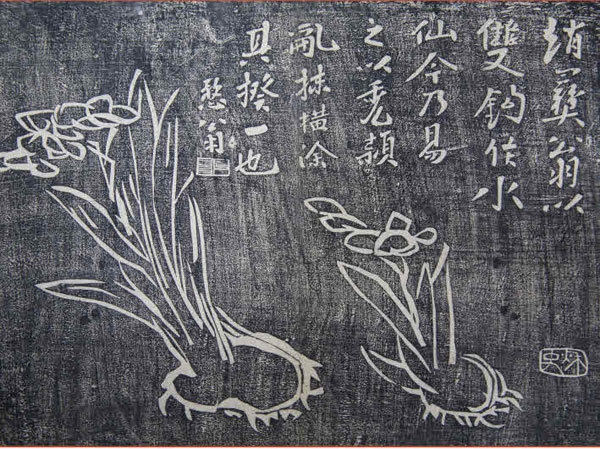 趙彝翁以
雙鈎作水
仙今乃易
之以禿穎
亂抹橫塗
其揆一也
翁